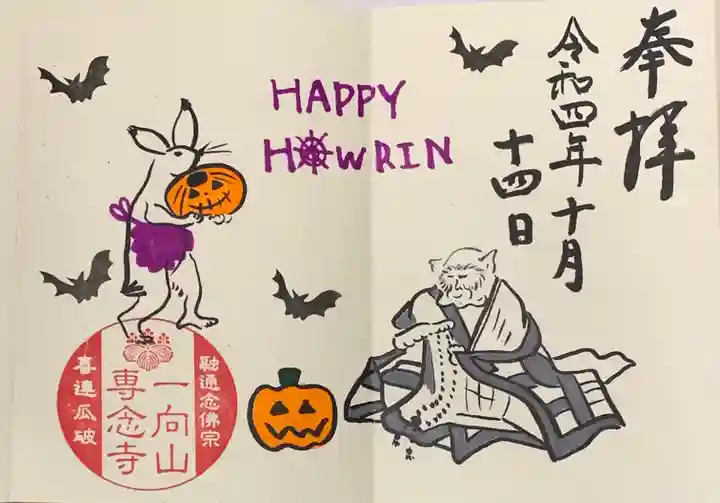 奉拝
令和四年十月
十四日
HAPPY
HOWRIN
融通念佛宗
一向山
専念寺
喜連瓜破